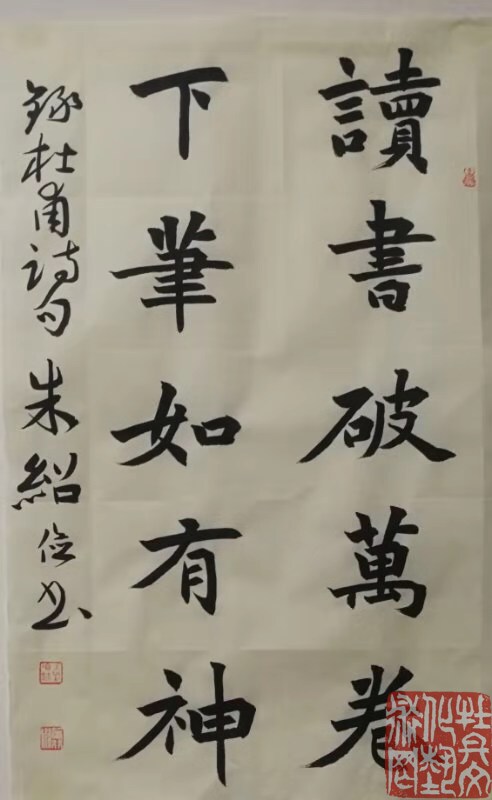 讀書破萬卷
下筆如有神
錄杜甫詩句 朱紹俊书